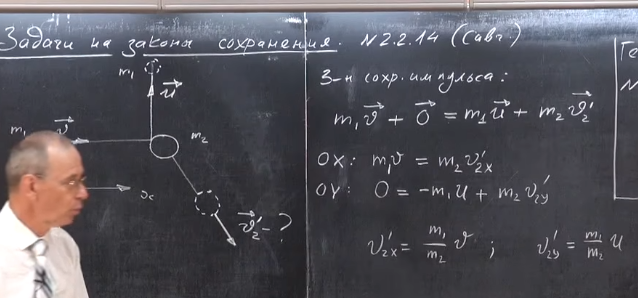 Задачи на законы сохранения. N2.2.14 (Савч.)
m₁
u⃗
m₁ v⃗
m₂
x
v⃗₂' - ?
З-н сохр. импульса:
m₁v⃗ + 0⃗ = m₁u⃗ + m₂v⃗₂'
OX: m₁v = m₂v₂ₓ'
OY: 0 = -m₁u + m₂v'₂y
v'₂ₓ = m₁/m₂ v ; v'₂y = m₁/m₂ u